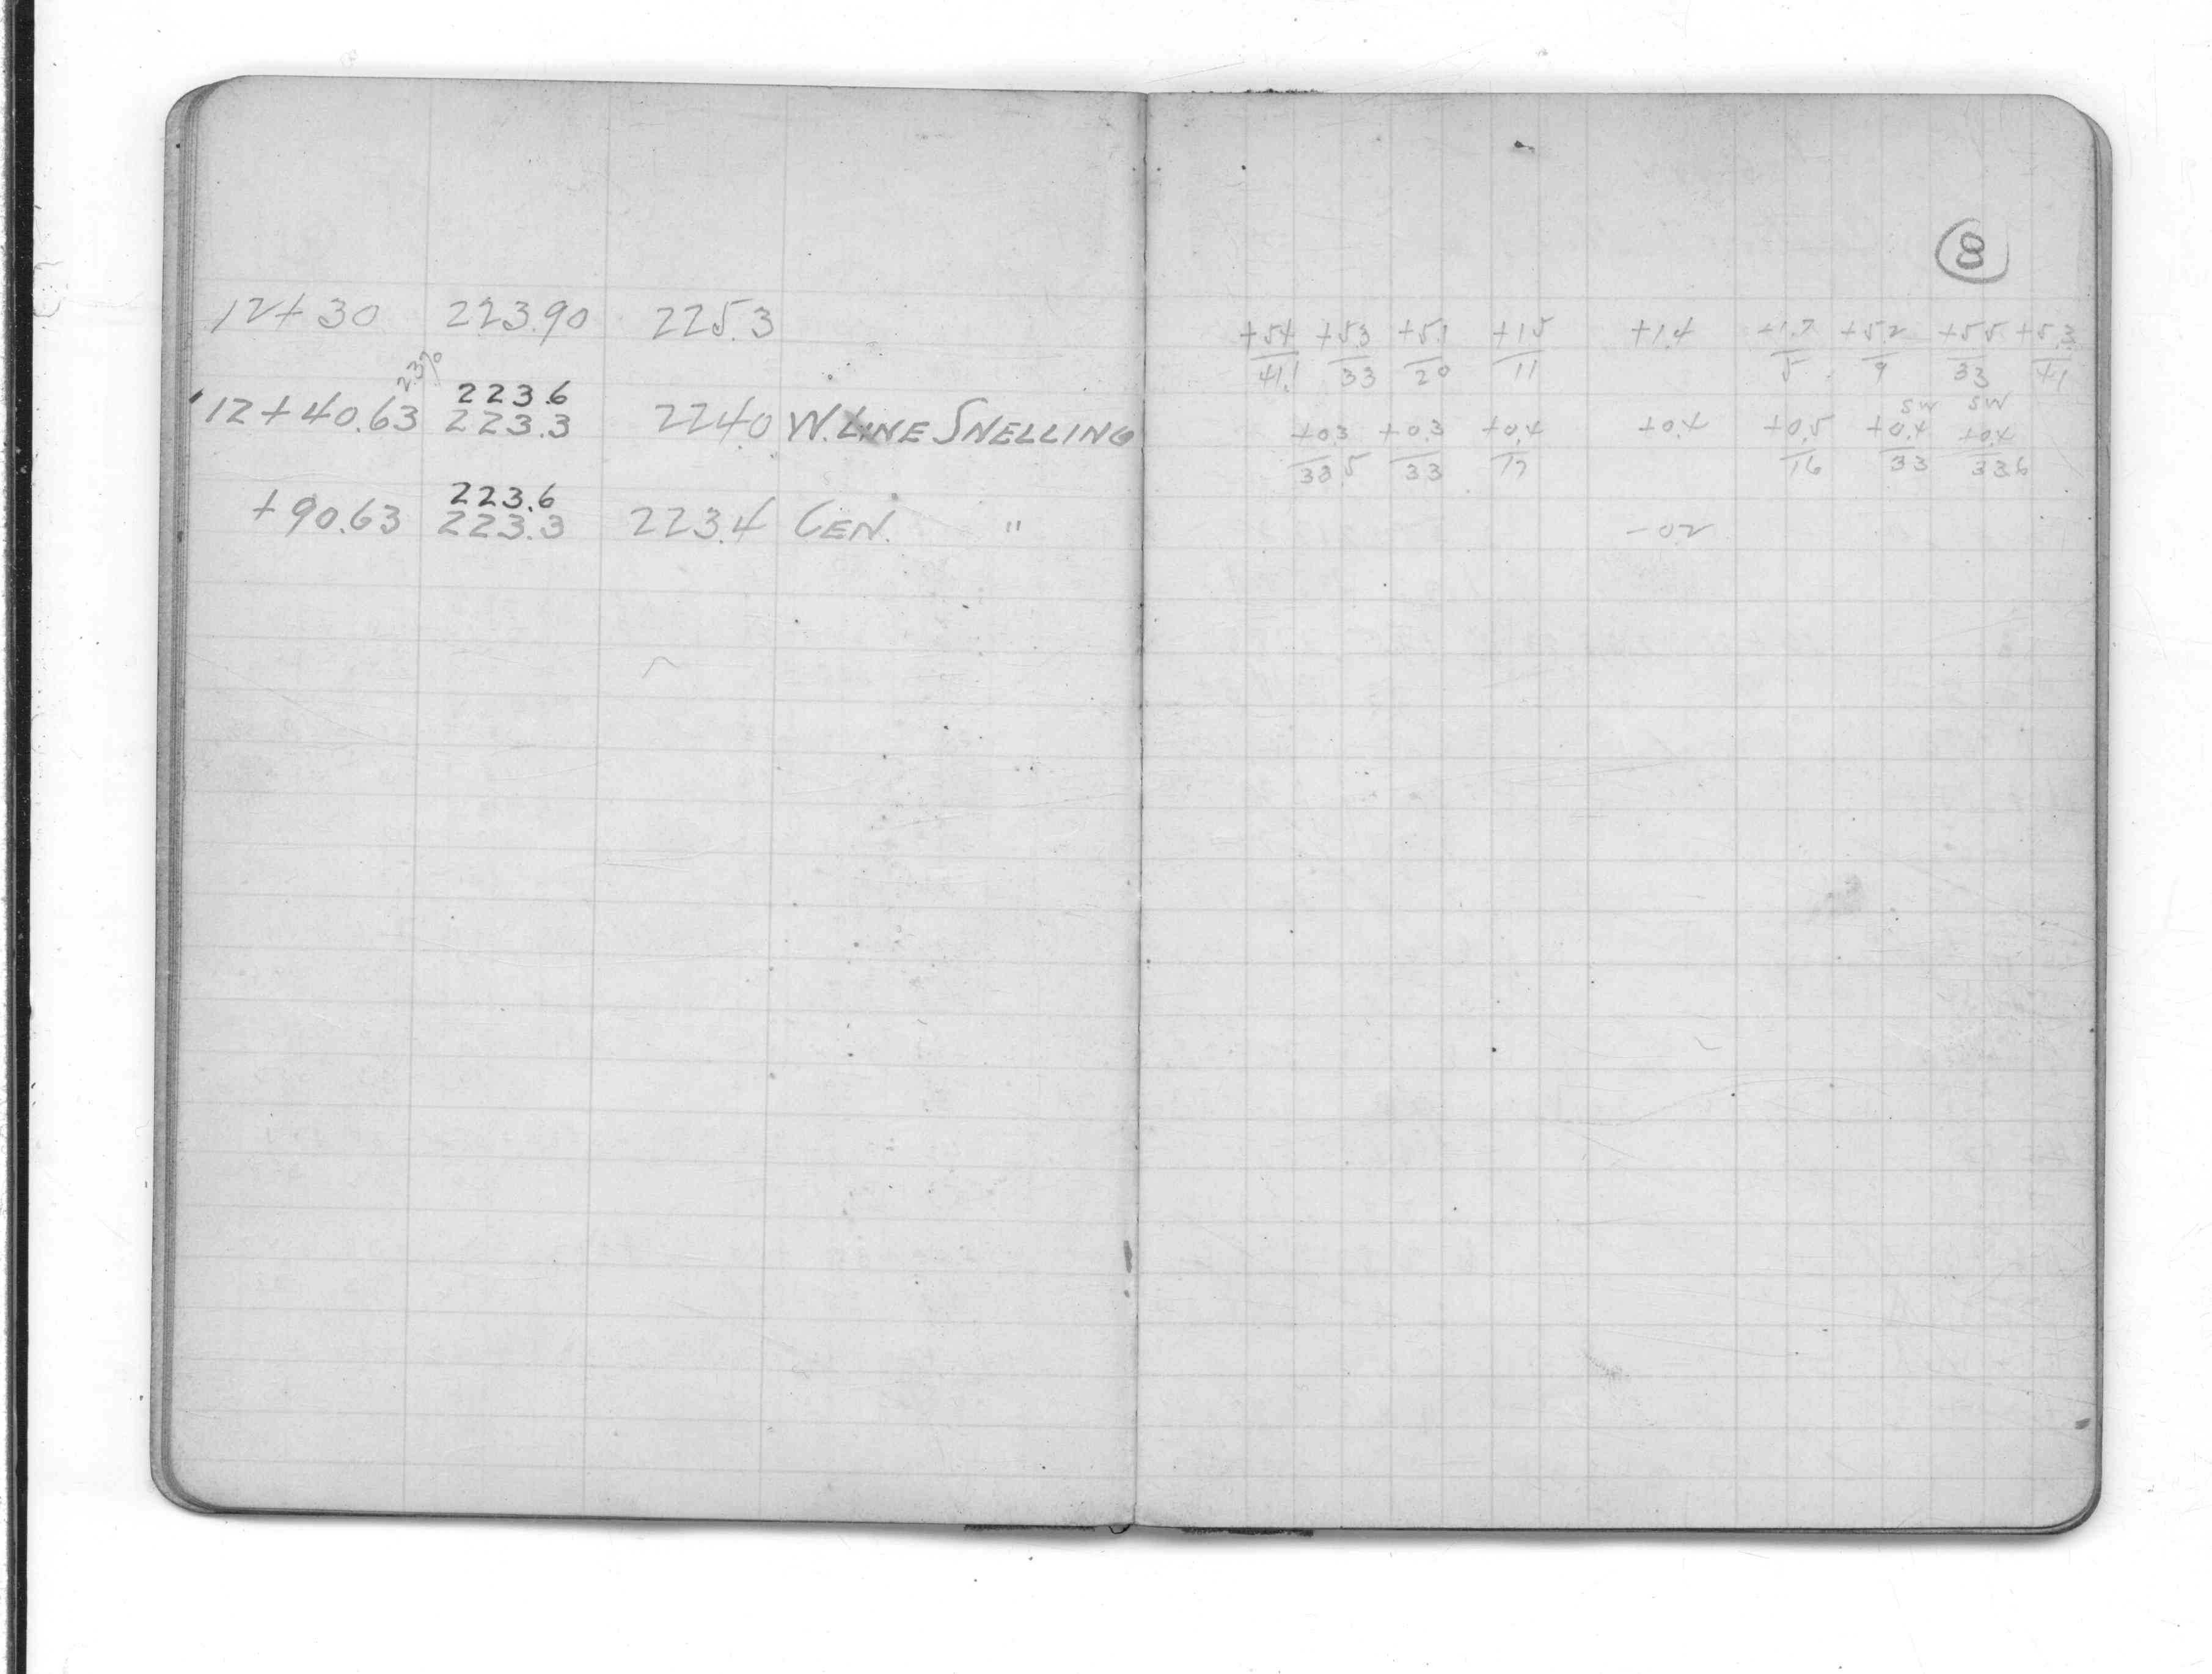 8
12+30 223.90 225.3 +5.4 +5.3 +5.1 +1.5 +1.4 +1.7 +5.2 +5.5 +5.3
41.1 33 20 11 5 9 33 41
2.3%
223.6 SW SW
12+40.63 223.3 224.0 W. LINE SNELLING +0.3 +0.3 +0.4 +0.4 +0.5 +0.4 +0.4
33.5 33 17 16 33 33.6
223.6
+90.63 223.3 223.4 CEN. " -0.2